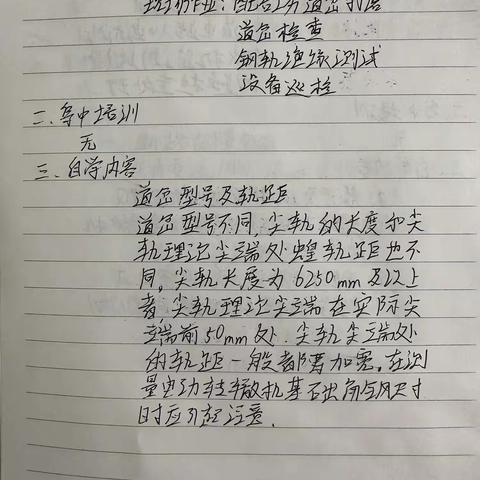 现场作业：配合工务道岔打磨
道岔检查
钢轨绝缘测试
设备巡检
二、集中培训
无
三、自学内容
道岔型号及轨距
道岔型号不同，尖轨的长度和尖
轨理论尖端处的轨距也不
同。尖轨长度为6250mm及以上
者，尖轨理论尖端在实际尖
端前50mm处。尖轨尖端处
的轨距一般都要加宽。在测
量电动转辙机基础角钢尺寸
时应引起注意。